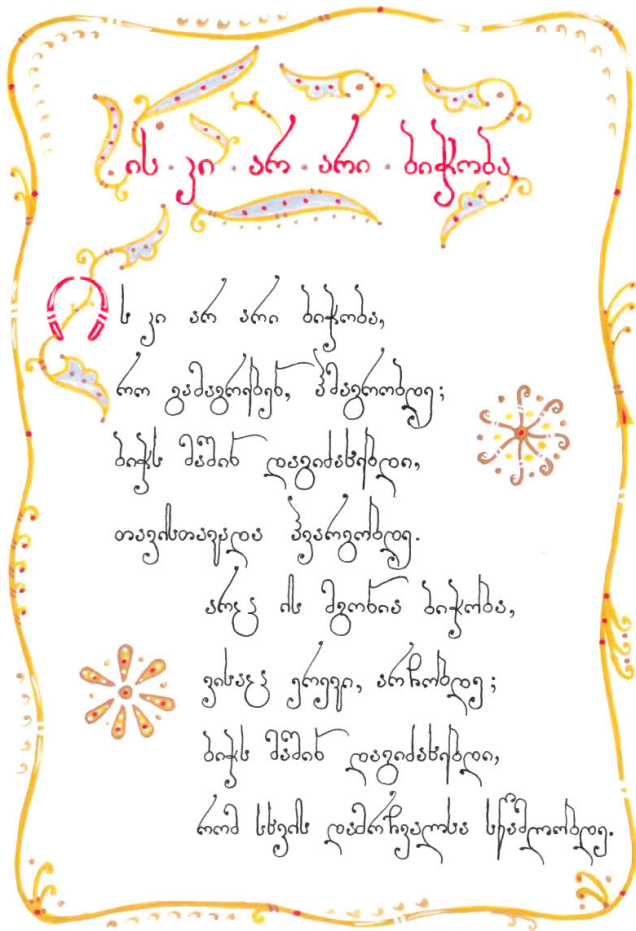 ის · კი · არ · არი · ბიჭობა
ის კი არ არი ბიჭობა,
რო გამაგრებენ, ჰმაგრობდე;
ბიჭს მაშინ დაგიძახებდი,
თავისთავადა ჰვარგობდე.
არც ის მგონია ბიჭობა,
ვისაც ერევი, არჩობდე;
ბიჭს მაშინ დაგიძახებდი,
რომ სხვის დამრჩვალსა სწამლობდე.